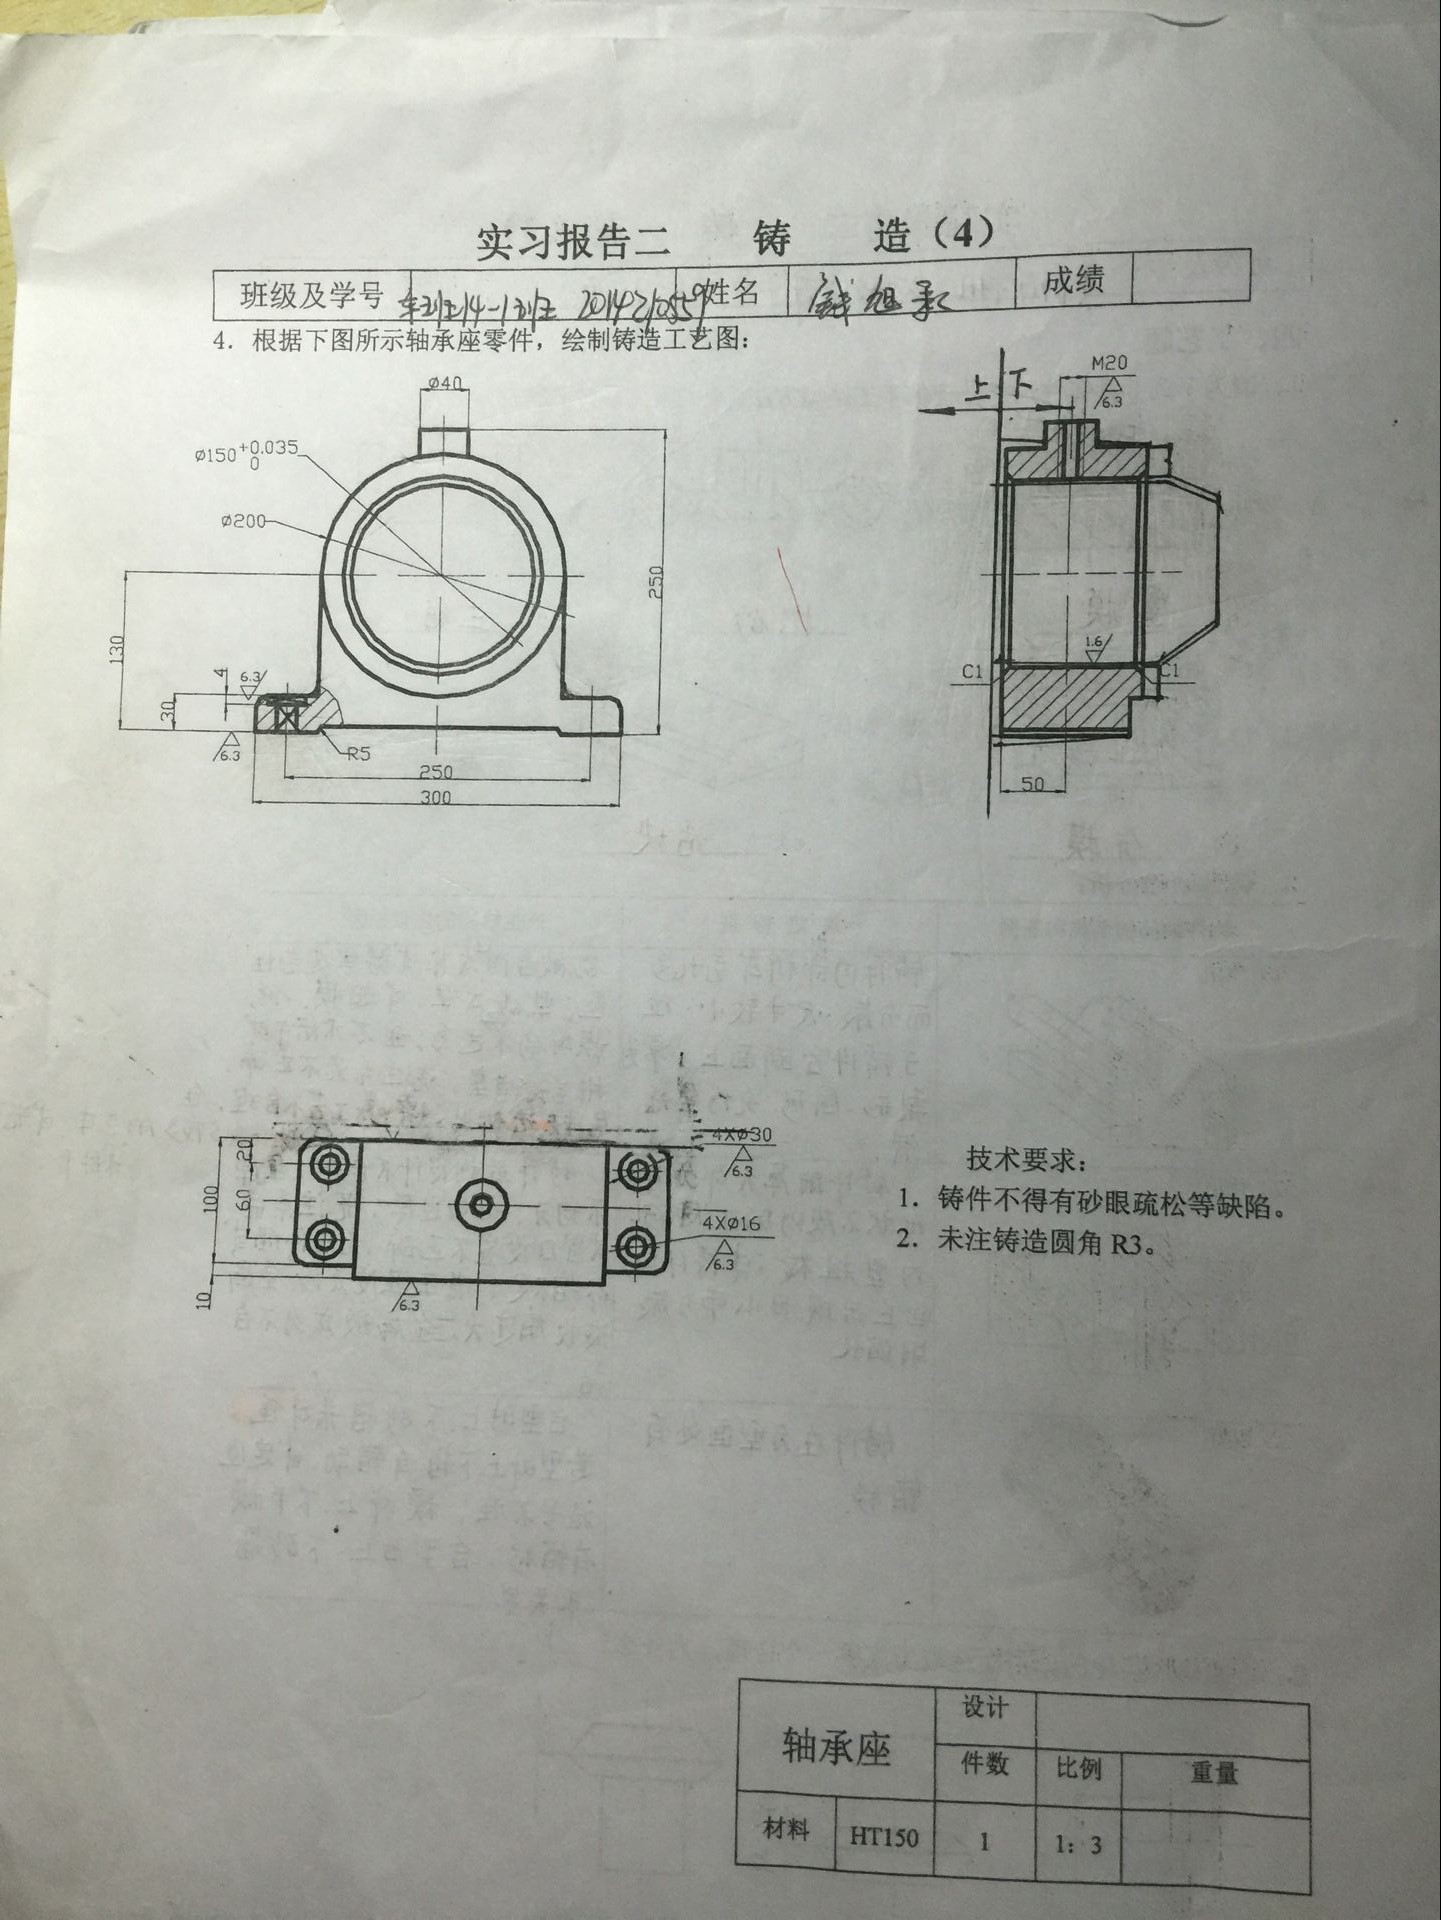 实习报告二 铸 造（4）
班级及学号 2014210559 姓名 钱旭 成绩
4. 根据下图所示轴承座零件，绘制铸造工艺图：
Ø40
Ø150+0.035
0
Ø200
250
130
4
6.3
30
6.3
R5
250
300
上 下
M20
6.3
1.6
C1
C1
50
20
100
60
10
6.3
4XØ30
6.3
4XØ16
6.3
技术要求：
1. 铸件不得有砂眼疏松等缺陷。
2. 未注铸造圆角 R3。
轴承座 设计
件数 比例 重量
材料 HT150 1 1：3